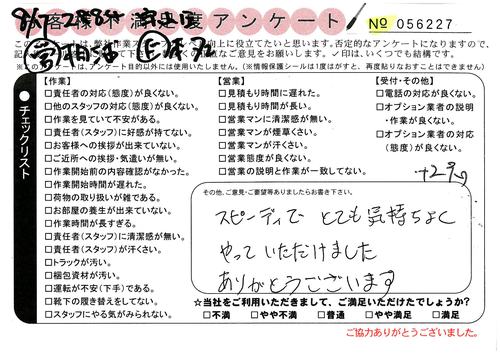 お客様満足度アンケート
No 056227
※このアンケートは、アンケート目的以外には使用いたしません。(※情報保護シールは1度はがすと、再度貼りなおすことはできません)
チェックリスト
【作業】
□責任者の対応(態度)が良くない。
□他のスタッフの対応(態度)が良くない。
□作業を見ていて不安がある。
□責任者(スタッフ)に好感が持てない。
□お客様への挨拶が出来ていない。
□ご近所への挨拶・気遣いが無い。
□作業開始前の内容確認がなかった。
□作業開始時間が遅れた。
□荷物の取り扱いが雑である。
□お部屋の養生が出来ていない。
□作業時間が長すぎる。
□責任者(スタッフ)に清潔感が無い。
□責任者(スタッフ)が汗くさい。
□トラックが汚い。
□梱包資材が汚い。
□運転が不安(下手)である。
□靴下の履き替えをしてない。
□スタッフにやる気がみられない。
【営業】
□見積もり時間に遅れた。
□見積もり時間が長い。
□営業マンに清潔感が無い。
□営業マンが煙草くさい。
□営業マンが汗くさい。
□営業態度が良くない。
□営業の説明と作業が一致してない。
【受付・その他】
□電話の対応が良くない。
□オプション業者の説明
・作業が良くない。
□オプション業者の対応
(態度)が良くない。
その他、ご意見・ご要望等ありましたらお書き下さい。
スピーディで とても気持ちよく
やっていただけました
ありがとうございます
☆当社をご利用いただきまして、ご満足いただけたでしょうか?
□不満 □やや不満 □普通 □やや満足 □満足
ご協力ありがとうございました。